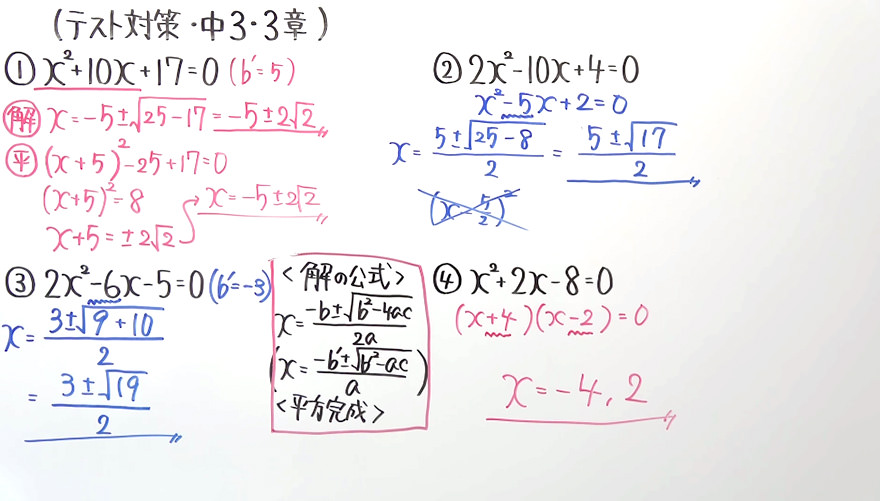 (テスト対策・中3・3章)
① x²+10x+17=0 (b'=5)
解 x=-5±√25-17=-5±2√2
平 (x+5)²-25+17=0
(x+5)²=8
x+5=±2√2
x=-5±2√2
② 2x²-10x+4=0
x²-5x+2=0
x=5±√25-8/2=5±√17/2
(x-5/2)²
③ 2x²-6x-5=0 (b'=-3)
x=3±√9+10/2
=3±√19/2
<解の公式>
x=-b±√b²-4ac/2a
(x=-b'±√b'²-ac/a)
<平方完成>
④ x²+2x-8=0
(x+4)(x-2)=0
x=-4,2